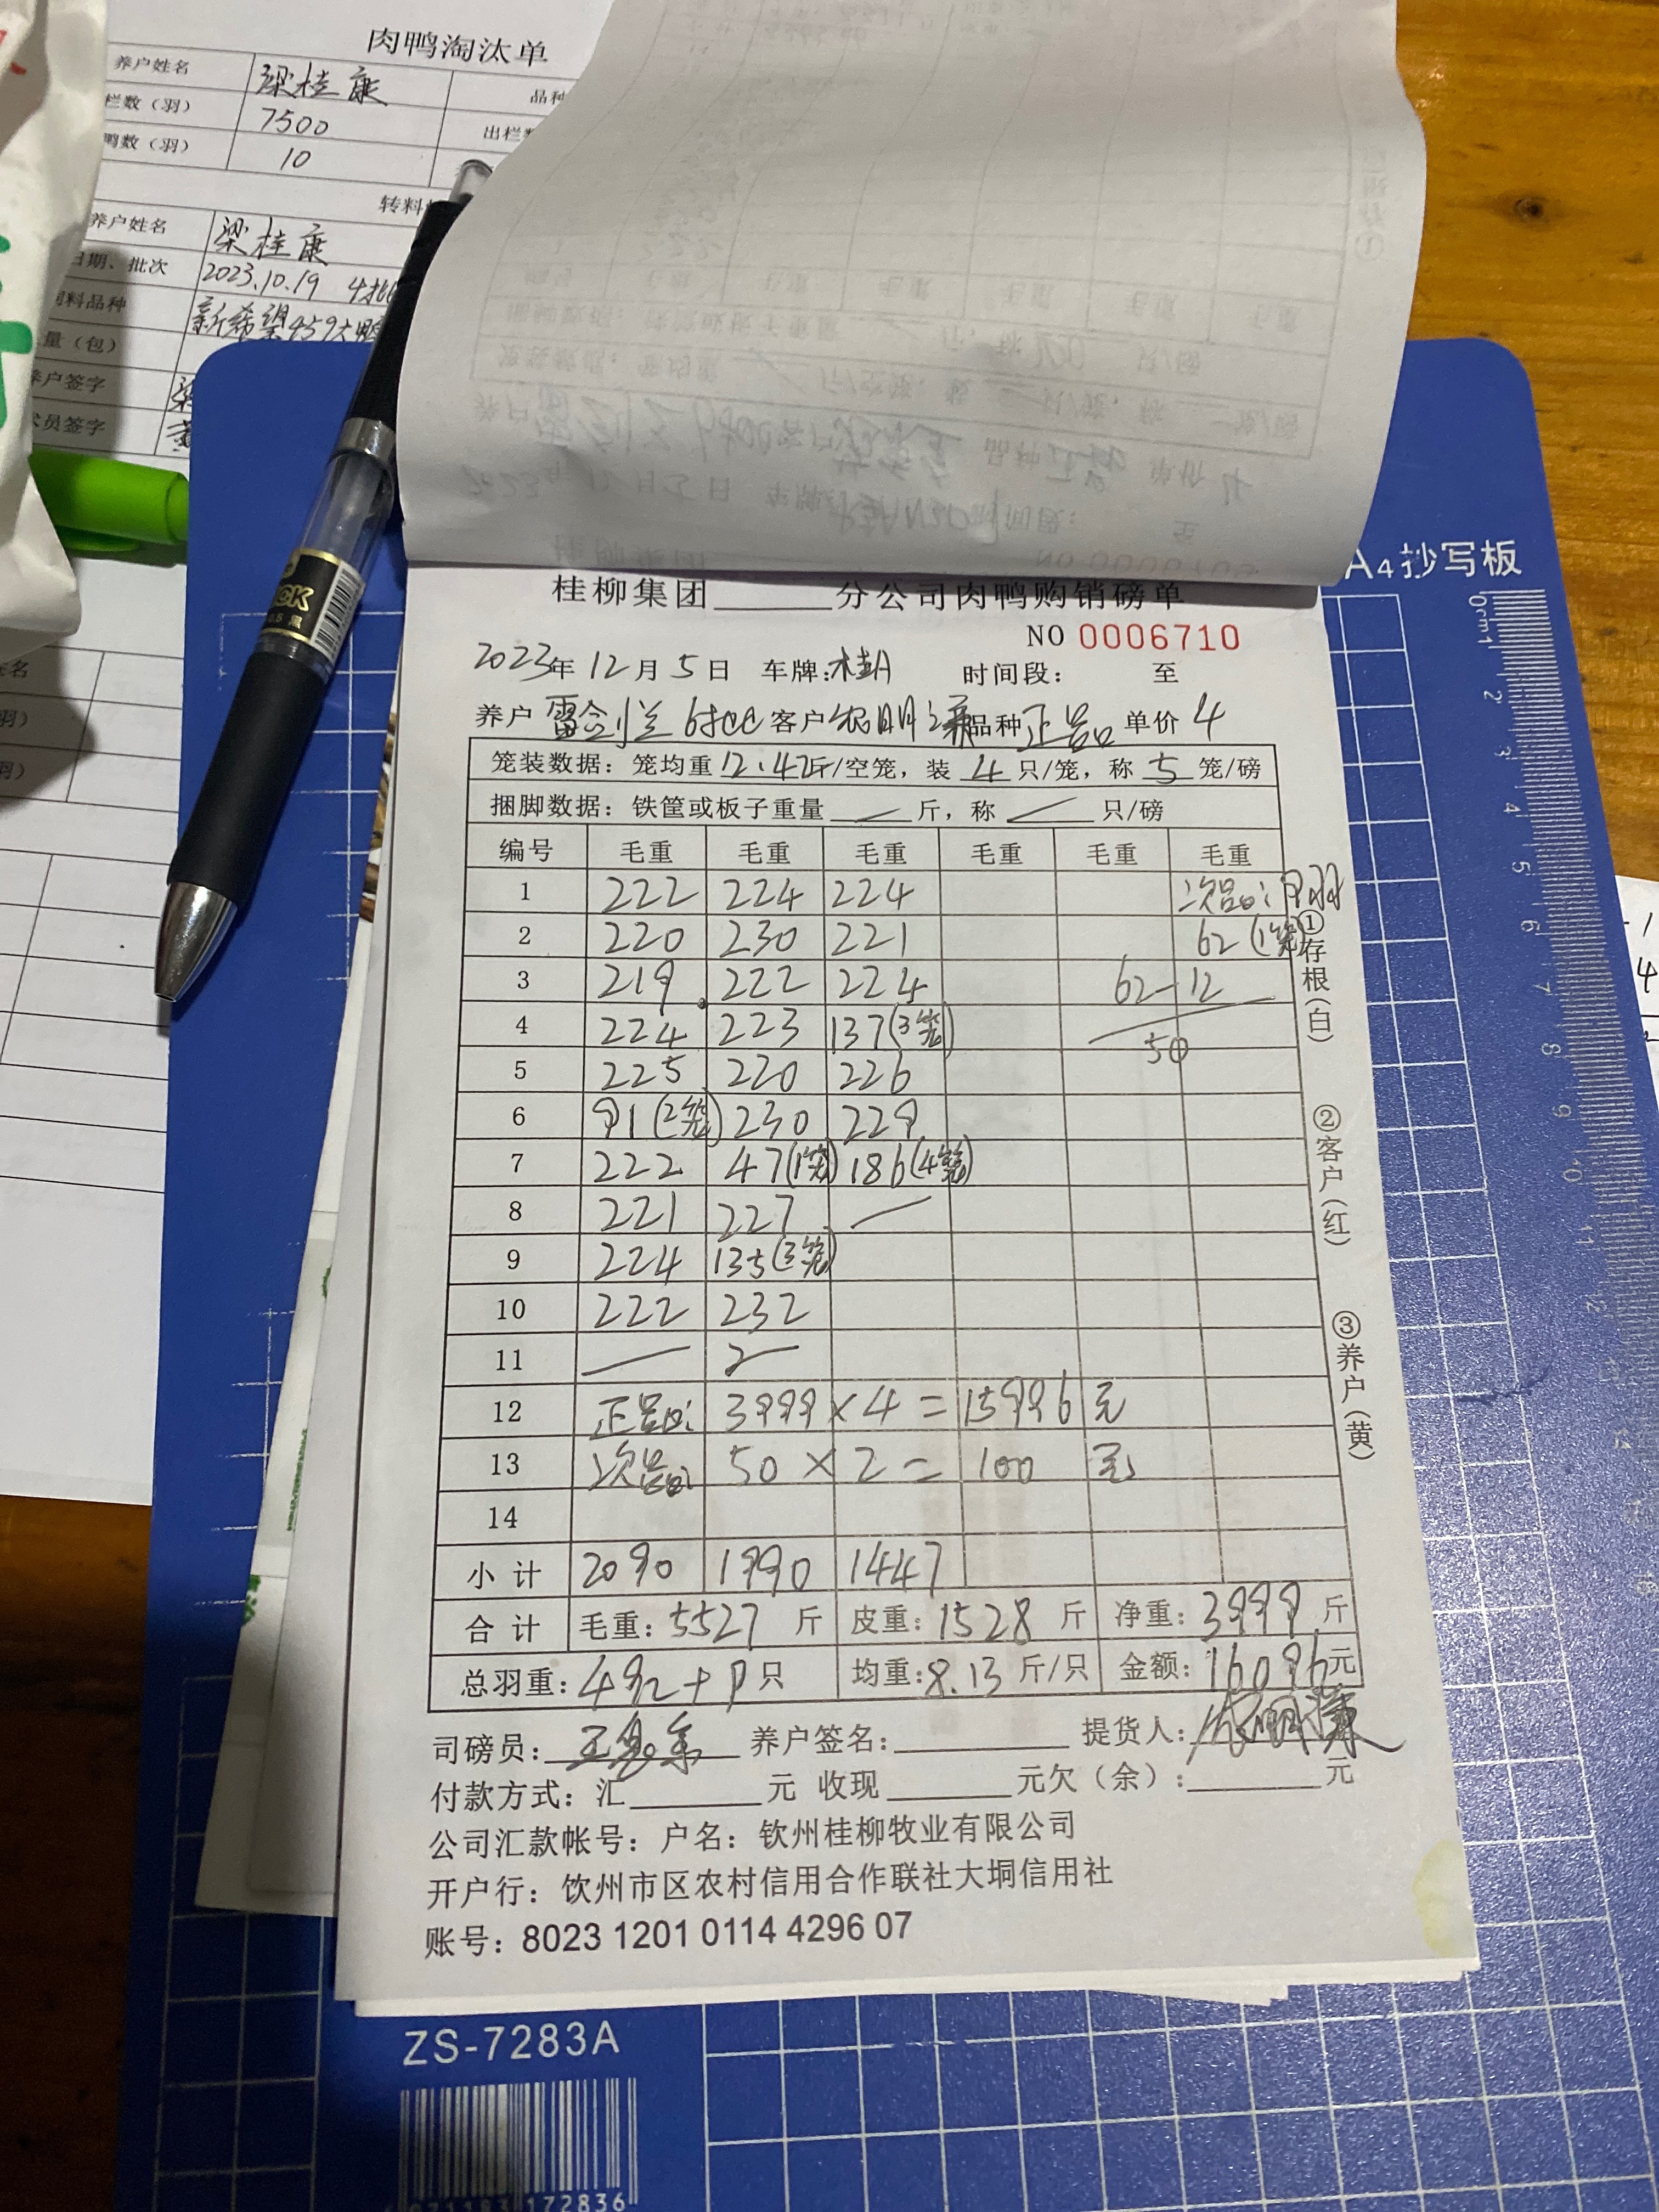 肉鸭淘汰单
养户姓名 梁桂康 品种
栏数（羽） 7500 出栏
鸭数（羽） 10
转料
养户姓名 梁桂康
日期、批次 2023.10.19 4批
饲料品种 新希望459大鸭
量（包）
养户签字
术员签字
A4抄写板
桂柳集团________分公司肉鸭购销磅单
NO 0006710
2023年 12月 5日 车牌: 时间段: 至
养户 6批 客户 农明 品种 正品 单价 4
笼装数据: 笼均重 12.42斤/空笼, 装 4 只/笼, 称 5 笼/磅
捆脚数据: 铁筐或板子重量 — 斤, 称 — 只/磅
编号 毛重 毛重 毛重 毛重 毛重 毛重
1 222 224 224 次品: 9羽
2 220 230 221 62 (1笼)
3 219 222 224 62-12
4 224 223 137(3笼) 50
5 225 220 226
6 91(2笼) 230 229
7 222 47(1笼) 186(4笼)
8 221 227 —
9 224 135(3笼)
10 222 232
11 — 2
12 正品: 3999 × 4 = 15996 元
13 次品: 50 × 2 = 100 元
14
小计 2090 1990 1447
合计 毛重: 5527 斤 皮重: 1528 斤 净重: 3999 斤
总羽重: 492+9只 均重: 8.13 斤/只 金额: 16096元
司磅员: 养户签名: 提货人:
付款方式: 汇________元 收现________元欠（余）:________元
公司汇款帐号: 户名: 钦州桂柳牧业有限公司
开户行: 钦州市区农村信用合作联社大垌信用社
账号: 8023 1201 0114 4296 07
①存根(白)
②客户(红)
③养户(黄)
ZS-7283A